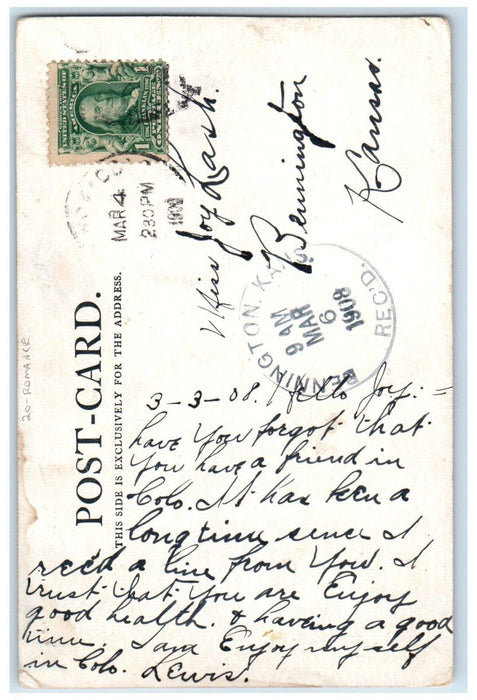 UNITED STATES OF AMERICA
FRANKLIN
1
1
MAR 4
230PM
Miss Joy Lash.
Bennington
Kansas.
BENNINGTON. KA
9 AM
MAR
6
1908
REC'D.
POST-CARD.
THIS SIDE IS EXCLUSIVELY FOR THE ADDRESS.
20-ROMANCE
3-3-08. Hello Joy: =
have you forgot that
you have a friend in
Colo. It has been a
long time sence I
rec'd a line from you. I
trust that you are Enjoy
good health. & having a good
time. I am Enjoy myself
in Colo. Lewis.